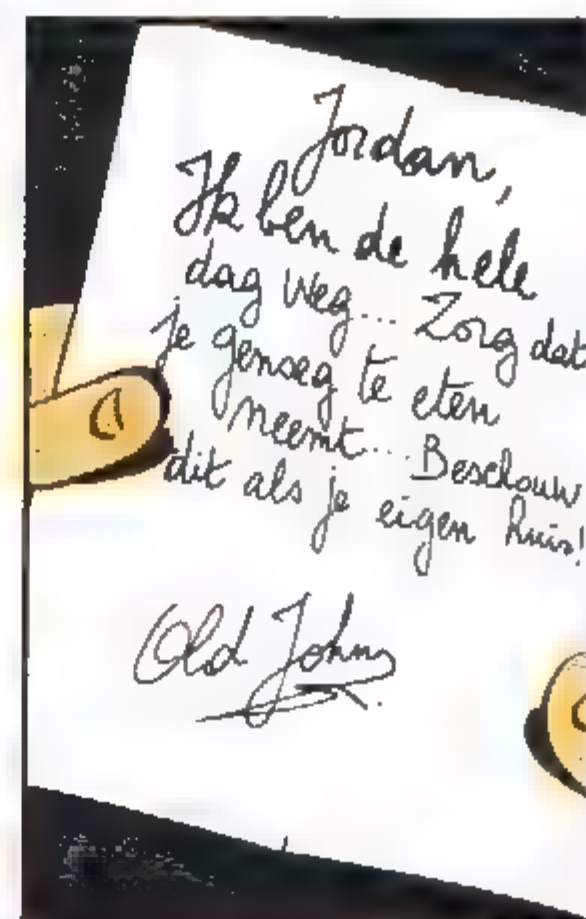 Jordan,
Ik ben de hele
dag weg... Zorg dat
je genoeg te eten
neemt... Beschouw
dit als je eigen huis!
Old John